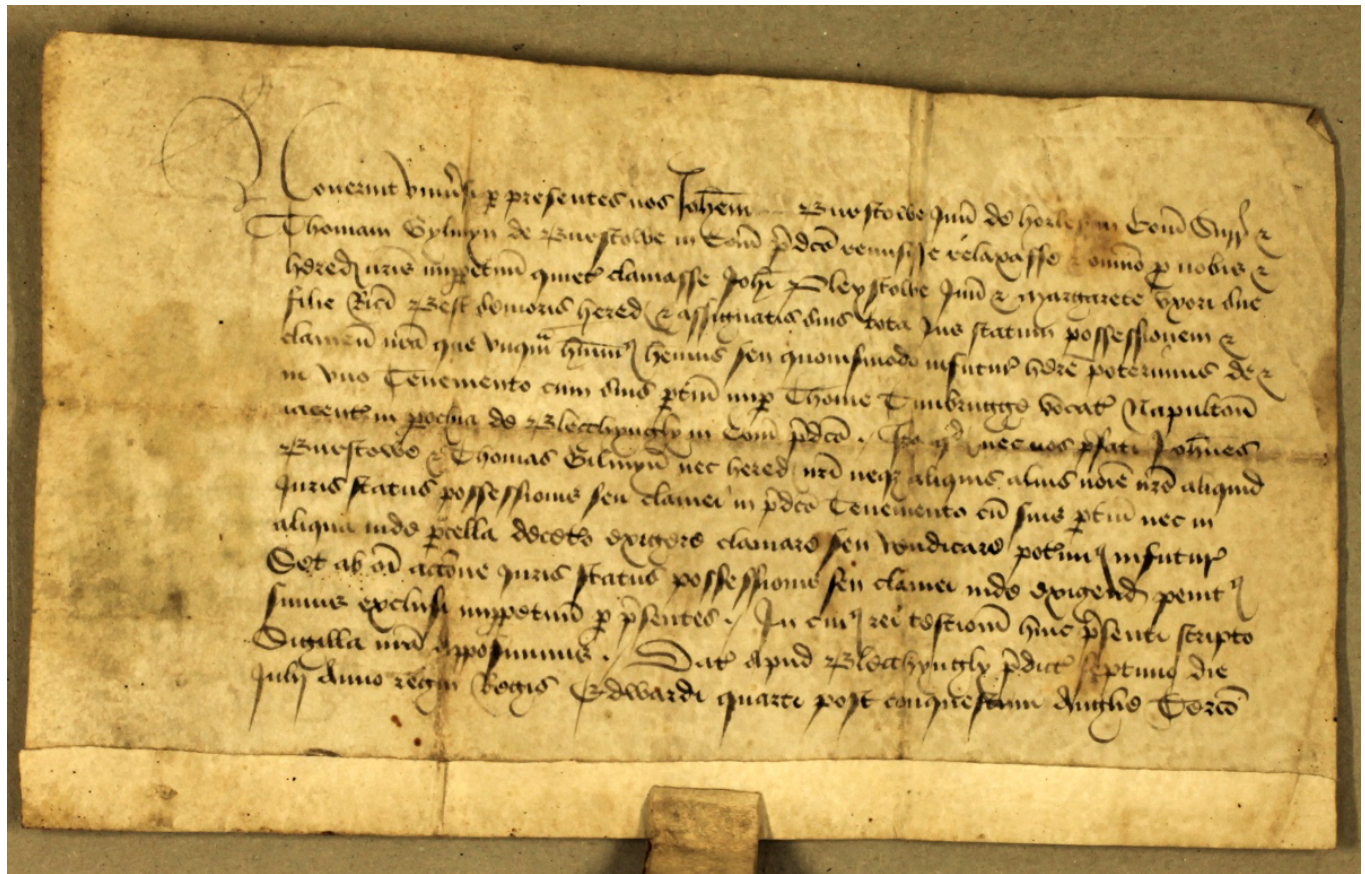 Noverint univsi p presentes nos Johem Burstowe Jun de horle in Com Surr &
Thomam Gylmyn de Burstowe in Com pdco remisisse relaxasse & omino p nobis &
hered nris imppetuu quiet clamasse Johi Pleystowe Jun & Margarete uxori sue
filie Rici Best senioris hered & assignatis suis tota Jus statum possessionem &
clameu nra que unqua huim hemus seu quovismodo infutur here poterimus de &
in uno Tenemento cum suis ptin nup Thome Tunbrugge vocat Napulton
iacent in pochia de Blecchyngly in Com pdco . Ita qd nec nos pfati Johnes
Burstowe & Thomas Gilmyn nec hered nri neqz aliquis alius noie nro aliquid
Juris status possessionis seu clamei in pdco Tenemento cu suis ptin nec in
aliqua inde pcella decetero exigere clamare seu vendicare potim infutur
Set ab oi accone Juris status possessionis seu clamei inde exigend penit
simus exclusi imppetuu p psentes . In cui rei testiom huic psenti scripto
Sigilla nra apposuimus . Dat apud Blecchyngly pdict septimo die
Julij Anno regni Regis Edwardi quarti post conquestum Anglie Tercio